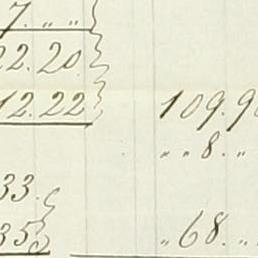 7. „ „
22.20
12.22 109.90
„ „ 8. „
33.
35 „ 68. „